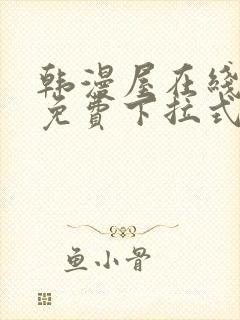 韩漫屋在线
免费下拉式
鱼小骨